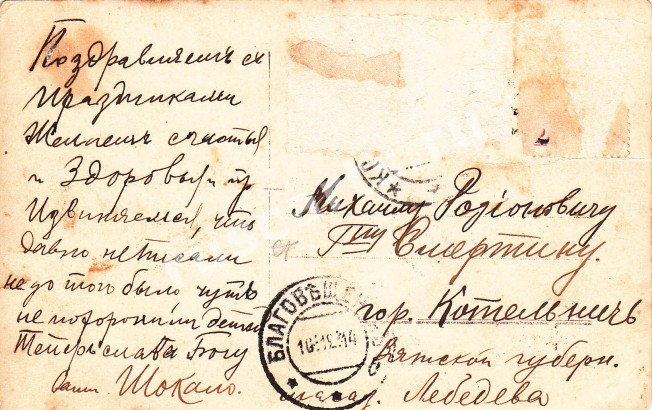 Поздравляемъ съ
праздниками
Желаемъ счастья
и здоровья и пр
Извиняемся, что
давно не писали
не до того было, чуть
не похоронили детей
Теперь слава Богу
ваши Шокало.
Михаилу Родіоновичу
Гну Смертину.
гор. Котельничъ
Вятской губерн.
Лебедева
БЛАГОВѢЩЕН
10.12.14
КО